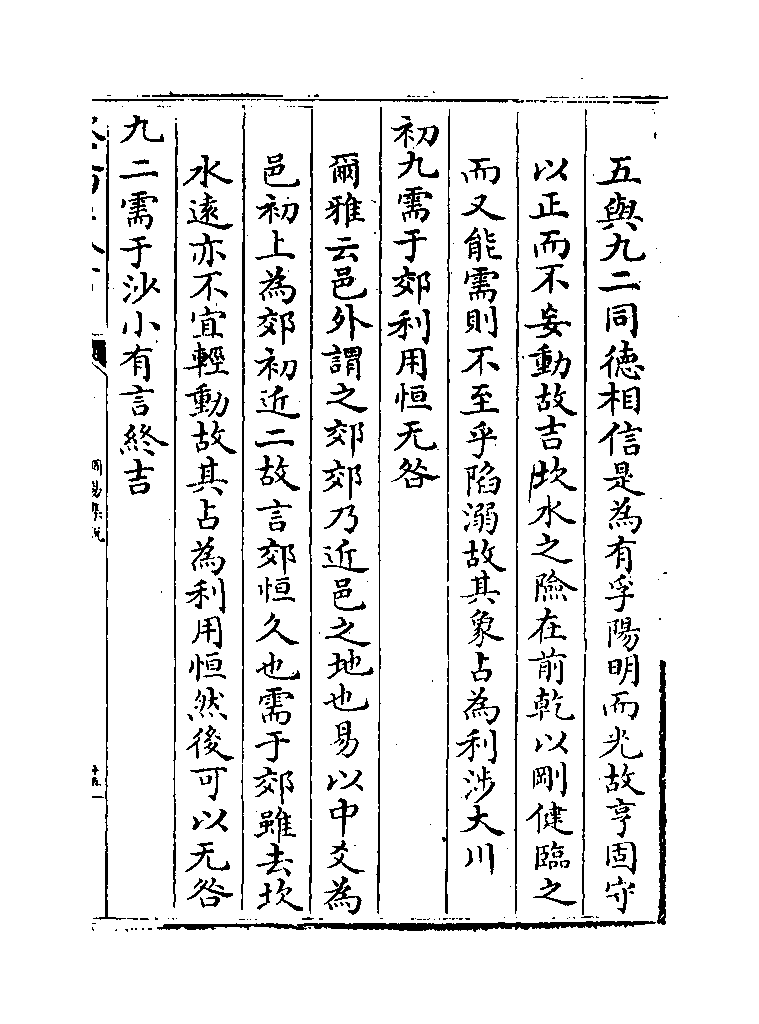 五與九二同德相信是為有孚陽明而光故亨固守
以正而不妄動故吉坎水之險在前乾以剛健臨之
而又能需則不至乎陷溺故其象占為利涉大川
初九需于郊利用恒无咎
爾雅云邑外謂之郊郊乃近邑之地也易以中爻為
邑初上為郊初近二故言郊恒久也需于郊雖去坎
水遠亦不宜輕動故其占為利用恒然後可以无咎
九二需于沙小有言終吉
周易集說